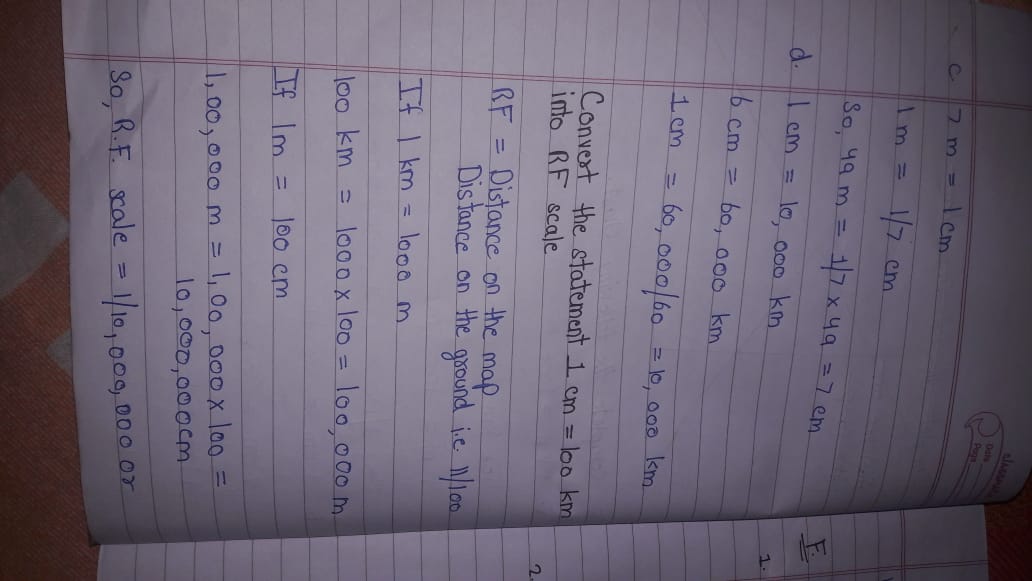 Date
Page
c. 7 m = 1 cm
1 m = 1/7 cm
So, 49 m = 1/7 x 49 = 7 cm
d. 1 cm = 10,000 km
6 cm = 60,000 km
1 cm = 60,000/60 = 10,000 km
Convert the statement 1 cm = 100 km
into RF scale
RF = Distance on the map
Distance on the ground i.e. 11/100
If 1 km = 1000 m
100 km = 1000 x 100 = 100,000 m
If 1m = 100 cm
1,00,000 m = 1,00,000 x 100 =
10,000,000cm
So, R.F. scale = 1/10,000,000 or
E.
1.
2.